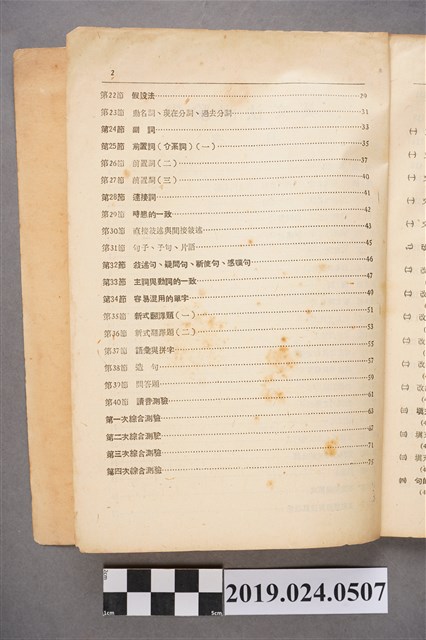 2
第22節 假設法 29
第23節 動名詞、現在分詞、過去分詞 31
第24節 副詞 33
第25節 前置詞(介系詞)(一) 35
第26節 前置詞(二) 37
第27節 前置詞(三) 40
第28節 連接詞 41
第29節 時態的一致 42
第30節 直接敍述與間接敍述 43
第31節 句子、子句、片語 45
第32節 敍述句、疑問句、祈使句、感嘆句 46
第33節 主詞與動詞的一致 47
第34節 容易混用的單字 49
第35節 新式翻譯題(一) 51
第36節 新式翻譯題(二) 53
第37節 語彙與拼字 55
第38節 造句 57
第39節 問答題 59
第40節 讀音測驗 61
第一次綜合測驗 63
第二次綜合測驗 67
第三次綜合測驗 71
第四次綜合測驗 75
2cm
1cm
5cm
2019.024.0507